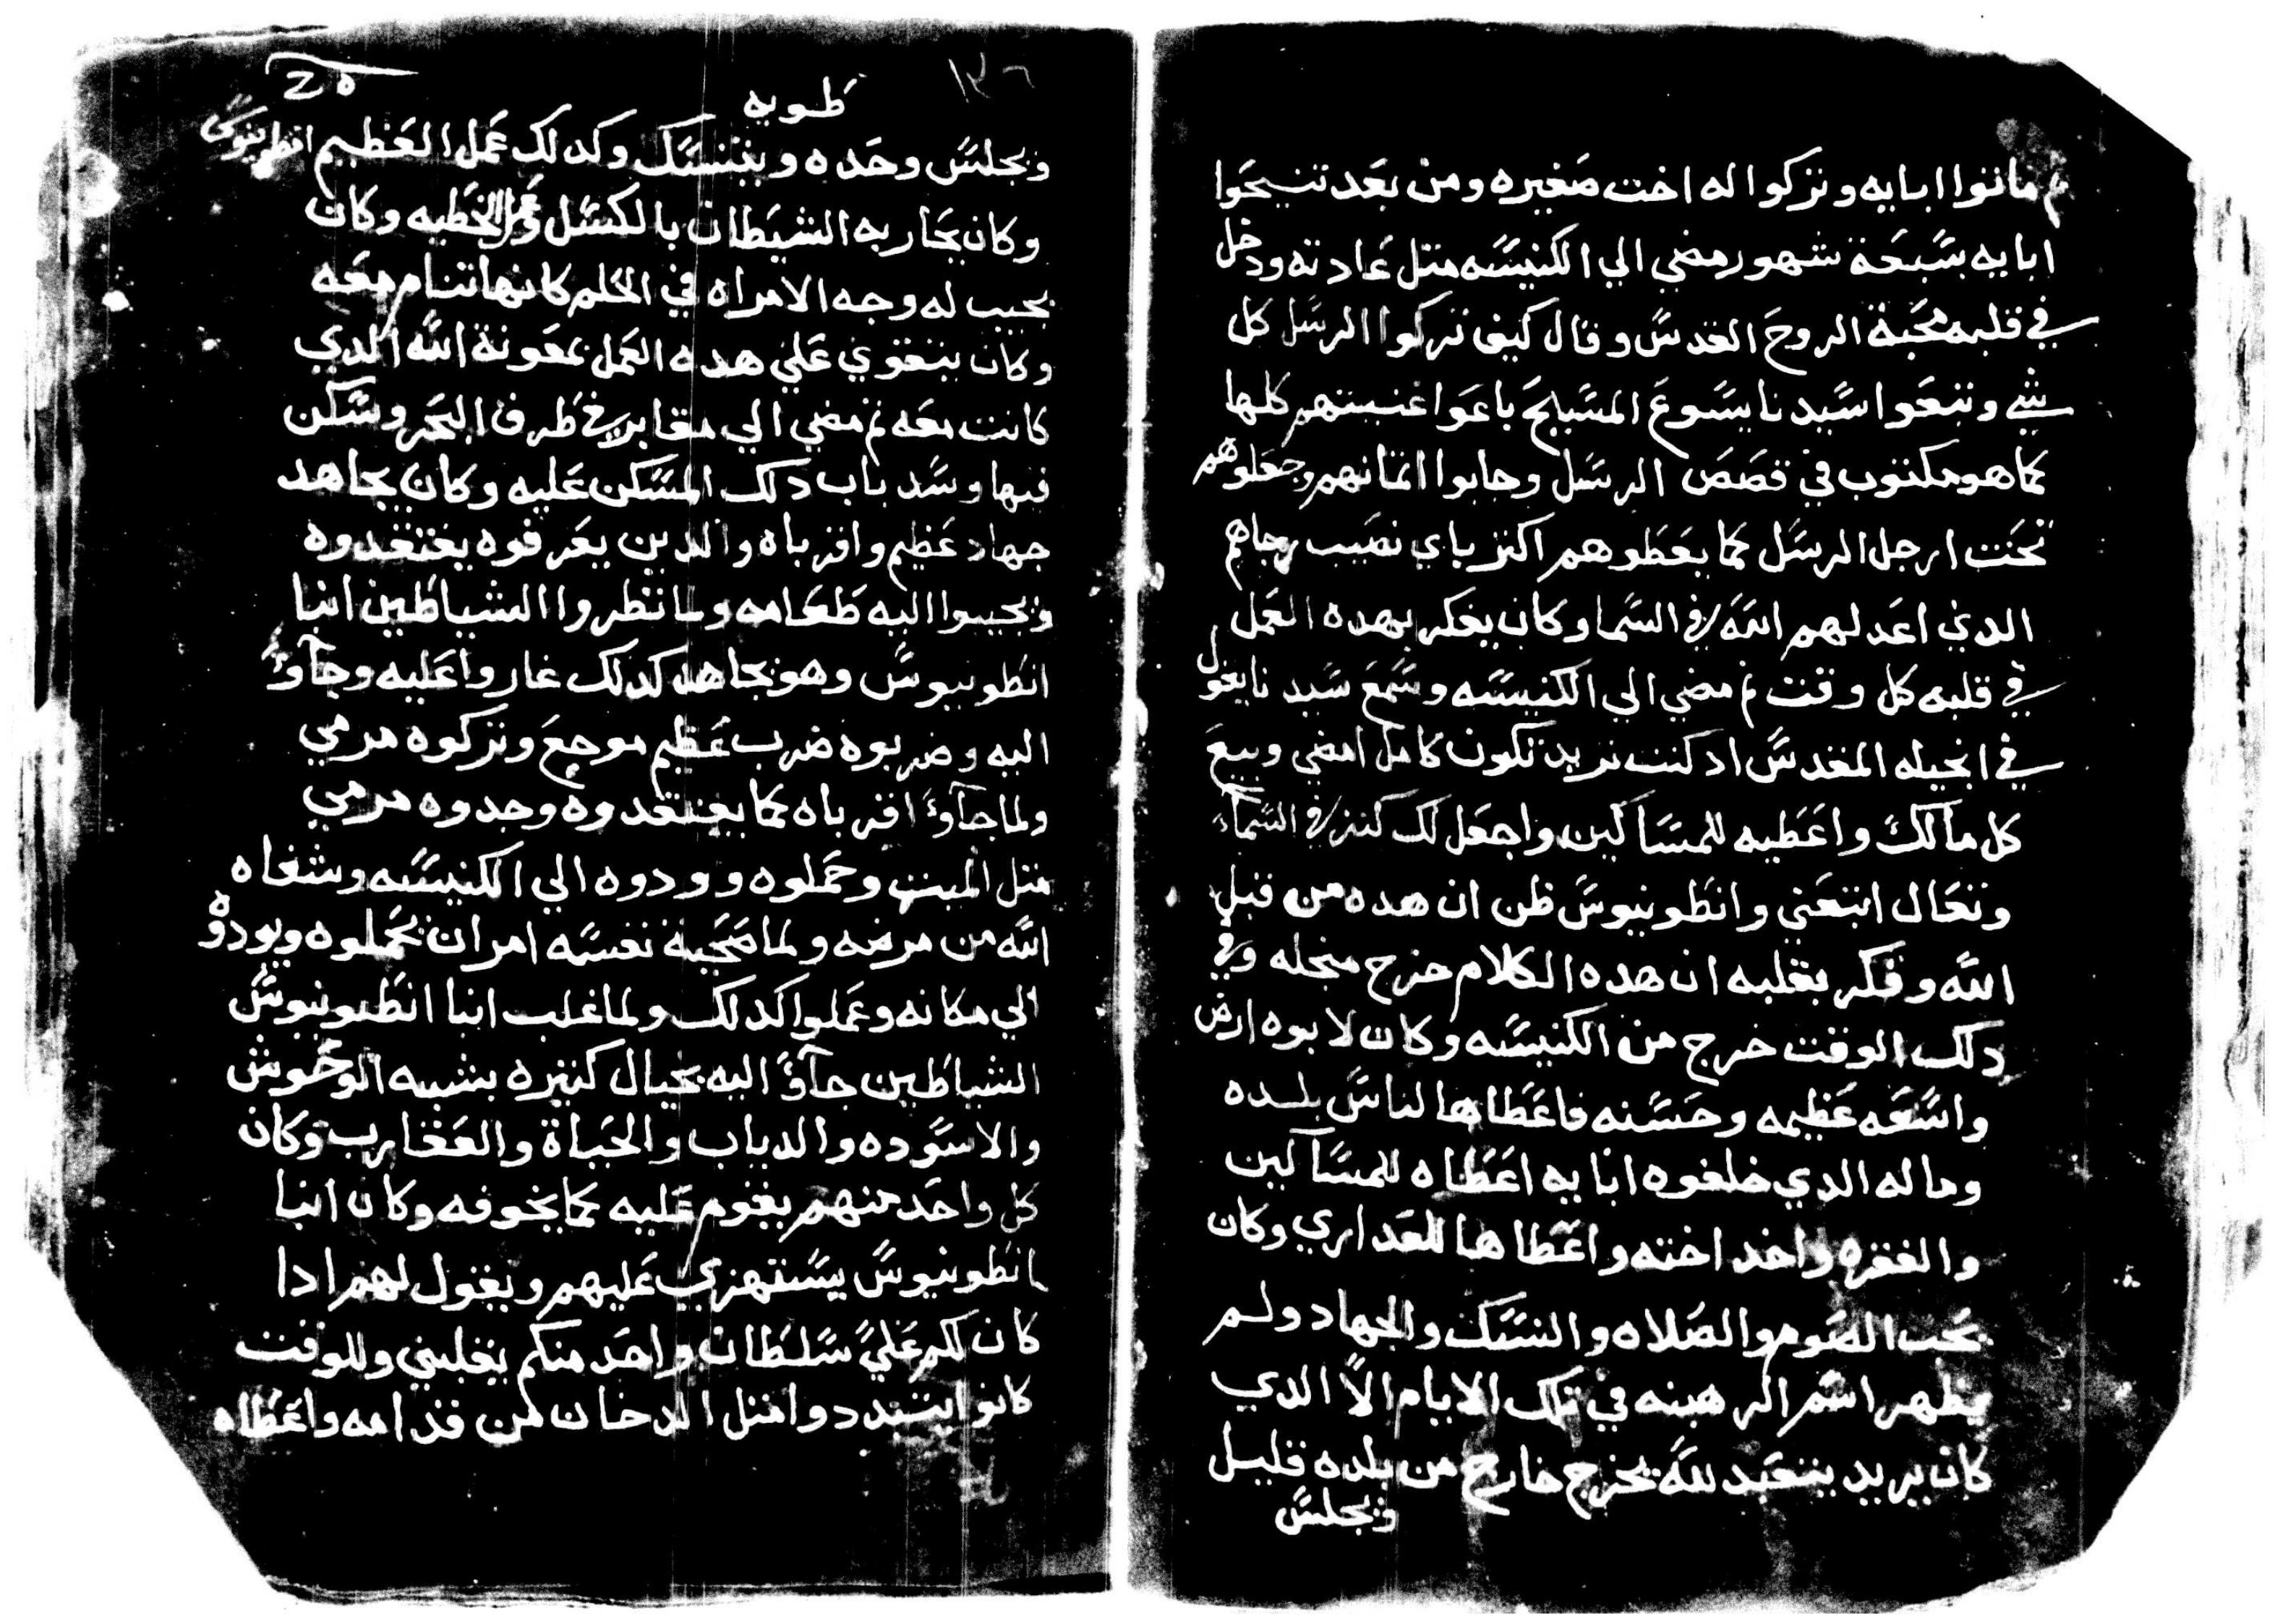 ماتوا ابايه وتركوا له اخت صغيره ومن بعد تنيحوا
ابايه بسبعة شهور مضي الي الكنيسه متل عادته ودخل
في قلبه محبة الروح القدس وقال كيف تركوا الرسل كل
شي وتبعوا سيدنا يسوع المسيح باعوا غنيتهم كلها
كما هو مكتوب في قصص الرسل وجابوا اتمانهم وجعلوهم
تحت ارجل الرسل كما يعطوهم اكتر باي نصيب رجاهم
الدي اعد لهم الله في السما وكان يفكر بهده العمل
في قلبه كل وقت تم مضي الي الكنيسه وسمع سيدنا يقول
في انجيله المقدس اد كنت تريد تكون كامل امضي وبيع
كل مالك واعطيه للمساكين واجعل لك كنز في السماء
وتعال اتبعني وانطونيوس ظن ان هده من قبل
الله وفكر بقلبه ان هده الكلام خرج منجله وفي
دلك الوقت خرج من الكنيسه وكان لابوه ارض
واسعه عظيمه وحسنه فاعطاها لناس بلده
وماله الدي خلفوه ابايه اعطاه للمساكين
والفقره واخد اخته واعطاها للعداري وكان
يحب الصوم والصلاه والنسك والجهاد ولم
يظهر اسم الرهبنه في تلك الايام الا الدي
كان يريد يتعبد لله يخرج خارج من بلده قليل
ويجلس
٢٥
طوبه
١٣٦
ويجلس وحده ويتنسك وكدلك عمل العظيم انطونيوس
وكان يحاربه الشيطان بالكسل وعمل الخطيه وكان
يجيب له وجه الامراه في الحلم كانها تنام معه
وكان يتقوي علي هده العمل بمعونة الله الدي
كانت معه تم مضي الي مقابر في طرف البحر وسكن
فيها وسد باب دلك المسكن عليه وكان يجاهد
جهاد عظيم واقرباه والدين يعرفوه يفتقدوه
ويجيبوا اليه طعامه ولما نظروا الشياطين انبا
انطونيوس وهو يجاهد كدلك غاروا عليه وجاوً
اليه وضربوه ضرب عظيم موجع وتركوه مرمي
ولما جاوً اقرباه كما يفتقدوه وجدوه مرمي
متل الميت وحملوه وودوه الي الكنيسه وشفاه
الله من مرضه ولما صحية نفسه امر ان يحملوه ويودوه
الي مكانه وعملوا كدلك ولما غلب انبا انطونيوس
الشياطين جاوً اليه بخيال كتيره بشبه الوحوش
والاسوده والدياب والحياة والعقارب وكان
كل واحد منهم يقوم عليه كما يخوفه وكان انبا
انطونيوس يستهزي عليهم ويقول لهم ادا
كان لكم عليً سلطان واحد منكم يغلبني وللوقت
كانوا يتبددوا متل الدخان من قدامه واعطاه